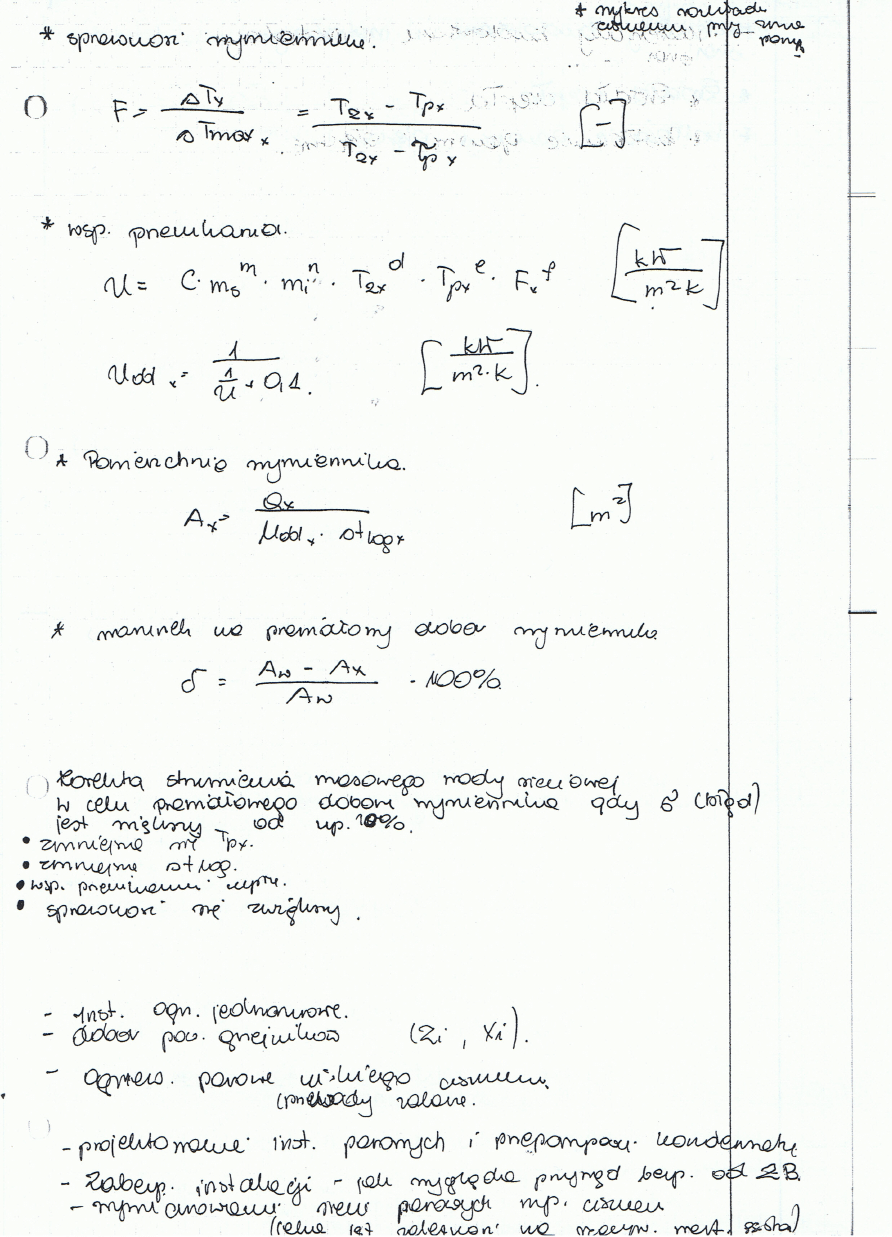 * wykres rozkładu
ciśnienia przy
pomp
* sprawność wymiennika.
F = ΔTx / ΔTmax x = T2x - Tpx / T2x - Tpx [-]
* wsp. przenikania.
U = C · ms^m · mi^n · T2x^d · Tpx^e · Fx^f [kW / m²K]
Uodd x = 1 / (1/U + 0,1. [kW / m²·K].
* Powierzchnia wymiennika.
Ax = Qx / Uodd x · Δt log x [m²]
* warunek na prawidłowy dobór wymiennika
δ = Aw - Ax / Aw · 100%
Korekta strumienia masowego wody sieciowej
w celu prawidłowego doboru wymiennika gdy δ (błąd)
jest większy od np. 10%.
• zmniejsza się Tpx.
• zmniejsza Δt log.
• wsp. przenikania
• sprawność się zwiększy.
- Inst. ogn. jednorurowe.
- dobór pow. grzejników (Zi, Xi).
- Ogrzew. parowe niskiego ciśnienia
(przewody zalane.
- projektowanie inst. parowych i przepomp. kondensatu
- Zabezp. instalacji - jak wygląda przyrząd bezp. od ZB.
- wymiarowanie sieci parowych np. ciśnien